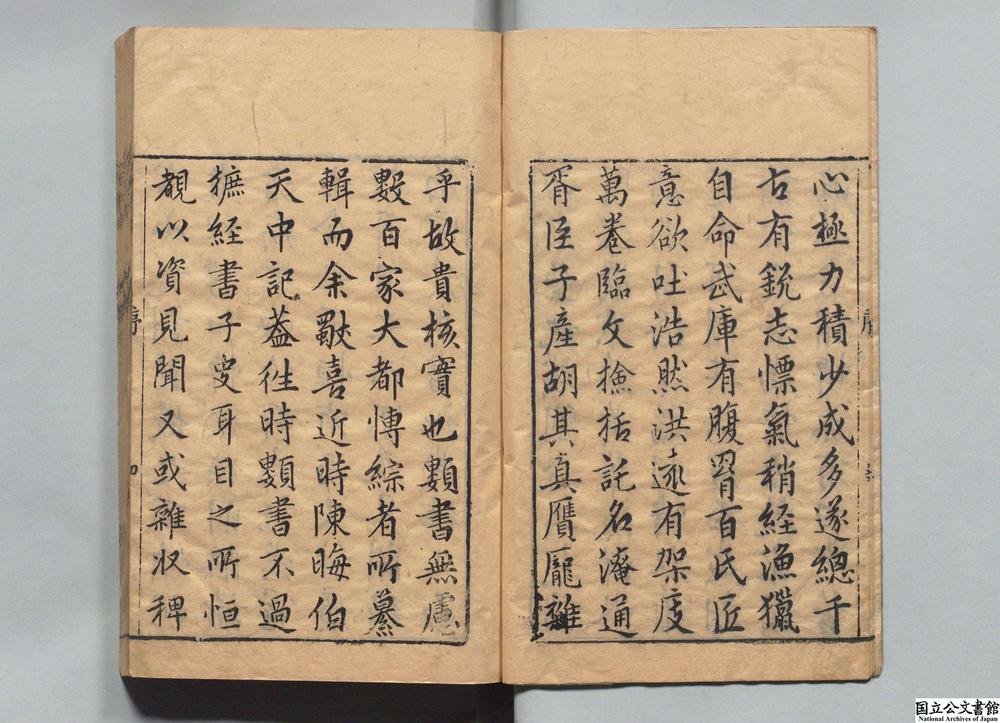 心極力積少成多遂總千
古有銳志慓氣稍經漁獵
自命武庫有腹胥百氏匠
意欲吐浩然洪遠有架庋
萬卷臨文撿括託名淹通
胥臣子產胡其真贗龎雜
乎故貴核實也類書無慮
數百家大都博綜者所纂
輯而余獸喜近時陳晦伯
天中記葢徃時類書不過
摭經書子史耳目之所恒
覩以資見聞又或雜収稗
序
四
国立公文書館
National Archives of Japan